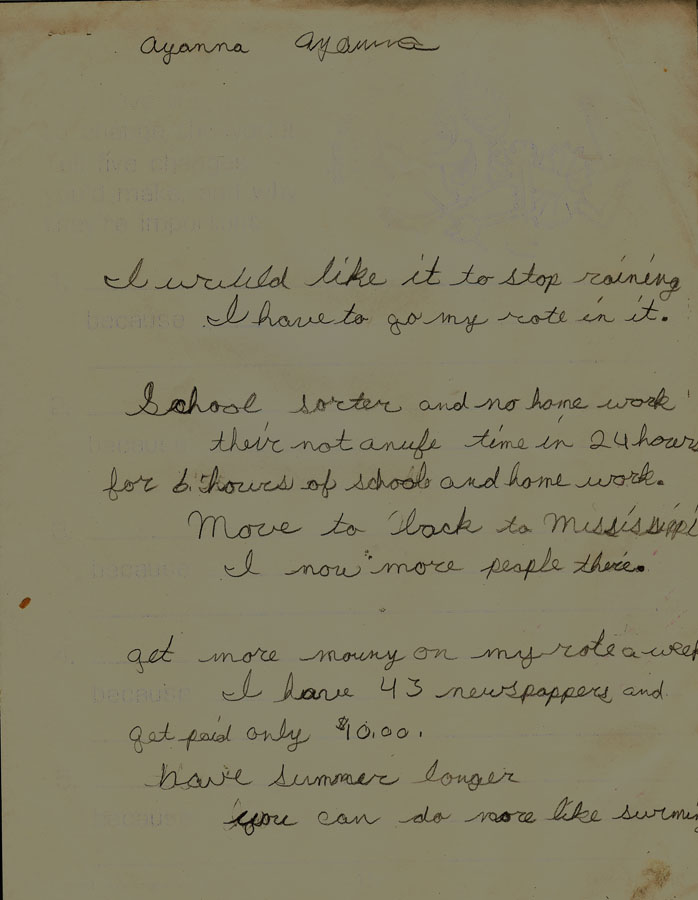 Ayanna Ayanna
to change the world
five changes
you'd make, and why
they're important.
1.
I wruld like it to stop raining
because I have to go my rote in it.
School sorter and no home work
because their not anufe time in 24 hours
for 6 hours of school and home work.
3. Move to back to Mississippi
because I now more people there.
4. get more mouny on my rote a week
because I have 43 newspappers and
get paid only $10.00.
5. have summer longer
because you can do more like